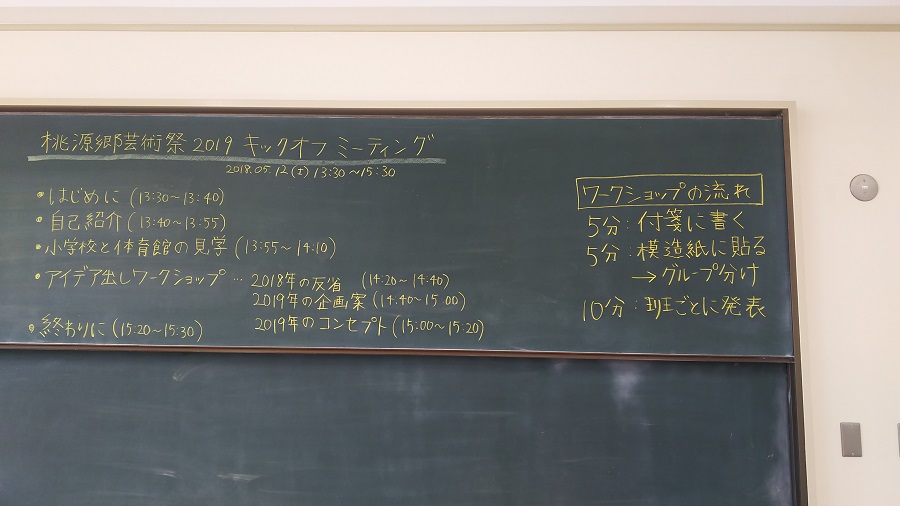 桃源郷芸術祭2019 キックオフミーティング
2018.05.12(土) 13:30～15:30
・はじめに (13:30～13:40)
・自己紹介 (13:40～13:55)
・小学校と体育館の見学 (13:55～14:10)
・アイデア出しワークショップ … 2018年の反省 (14:20～14:40)
2019年の企画案 (14:40～15:00)
2019年のコンセプト (15:00～15:20)
・終わりに (15:20～15:30)
ワークショップの流れ
5分：付箋に書く
5分：模造紙に貼る
→グループ分け
10分：班ごとに発表